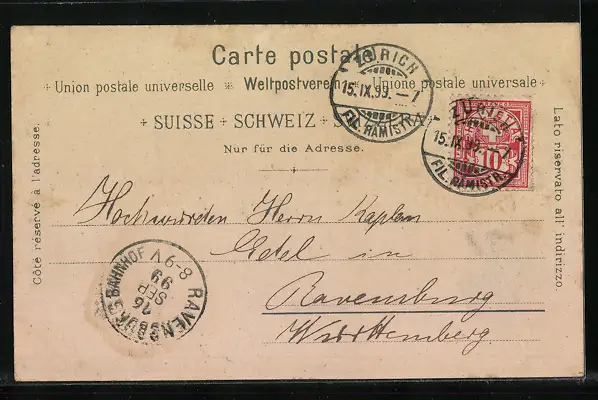 Carte postale
Union postale universelle Weltpostverein Unione postale universale
SUISSE SCHWEIZ SVIZZERA
Nur für die Adresse.
Côté réservé à l'adresse.
Lato riservato all' indirizzo.
ZÜRICH
15.IX.99.–7
FIL.RÄMISTR.
ZÜRICH
15.IX.99.–7
FIL.RÄMISTR.
10
Hochwürden Herrn Kaplan
Edel in
Ravensburg
Württemberg
RAVENSBURG BAHNHOF
16
SEP
99
8-9 V